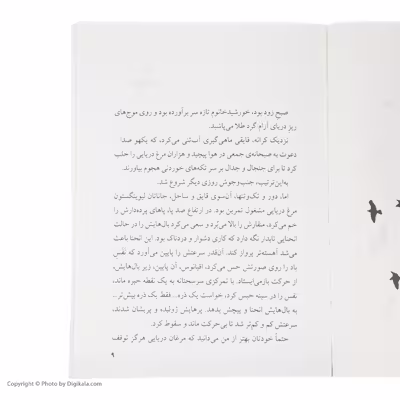 صبح زود بود، خورشیدخانوم تازه سر برآورده بود و روی موج‌های
ریز دریای آرام گرد طلا می‌پاشید.
نزدیک کرانه، قایقی ماهی‌گیری آب‌تنی می‌کرد، که یکهو صدا
دعوت به صبحانه‌ی جمعی در هوا پیچید و هزاران مرغ دریایی را جلب
کرد تا برای جنجال و جدال بر سر تکه‌های خوردنی هجوم بیاورند.
به‌این‌ترتیب، جنب‌وجوش روزی دیگر شروع شد.
اما، دور و تک‌وتنها، آن‌سوی قایق و ساحل، جاناتان لیوینگستون
مرغ دریایی مشغول تمرین بود. در ارتفاع صد پا، پاهای پرده‌دارش را
خم می‌کرد، منقارش را بالا می‌برد و سعی می‌کرد بال‌هایش را در حالت
انحنایی ناپایدار نگه دارد که کاری دشوار و دردناک بود. این انحنا باعث
می‌شد آهسته‌تر پرواز کند. آن‌قدر سرعتش را پایین می‌آورد که نفس
باد را روی صورتش حس می‌کرد، اقیانوس، آن پایین، زیر بال‌هایش،
از حرکت بازمی‌ایستاد. با تمرکزی سرسختانه به یک نقطه خیره ماند،
نفس را در سینه حبس کرد، خواست یک ذره... فقط یک ذره بیش‌تر...
به بال‌هایش انحنا و پیچش بدهد. پرهایش ژولیده و پریشان شدند،
سرعتش کم و کم‌تر شد تا بی‌حرکت ماند و سقوط کرد.
حتماً خودتان بهتر از من می‌دانید که مرغان دریایی هرگز توقف
۹
Copyright © Photo by Digikala.com